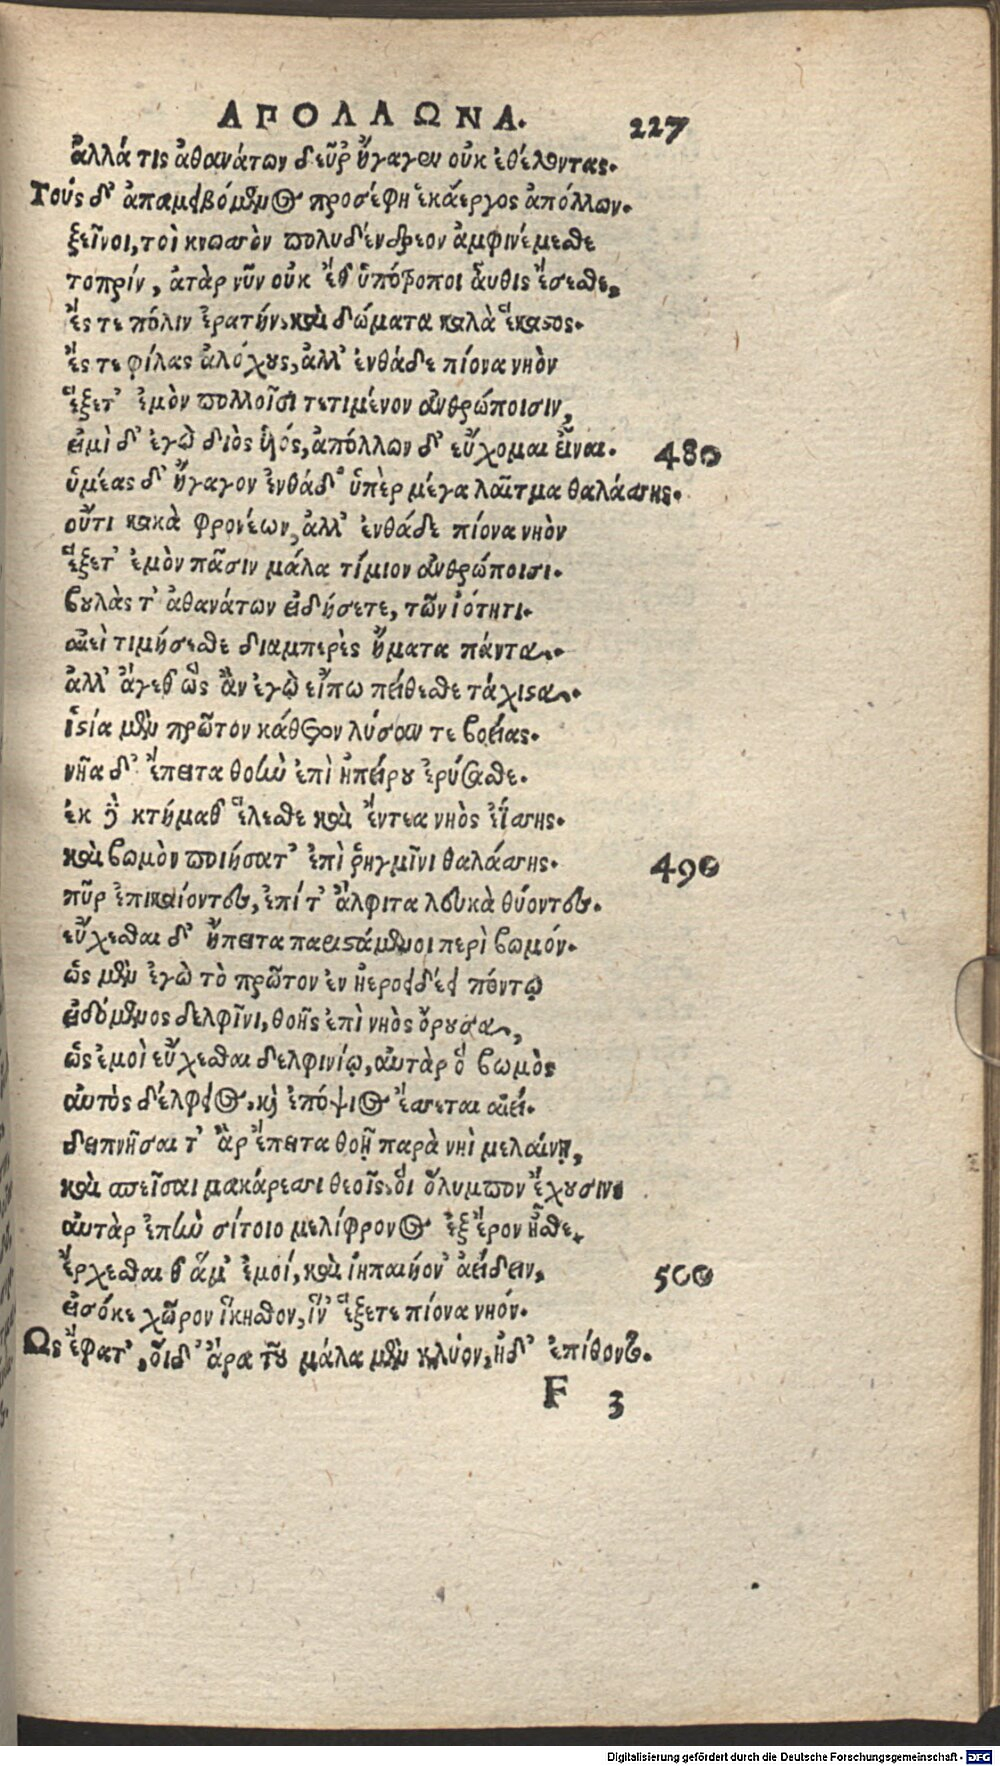 ΑΠΟΛΛΩΝΑ. 227
ἀλλά τις ἀθανάτων δεῦρ᾽ ἤγαγεν οὐκ ἐθέλοντας.
Τοὺς δ᾽ ἀπαμειβόμενος προσέφη ἑκάεργος ἀπόλλων.
ξεῖνοι, τοὶ κνωσσὸν πολυδένδρεον ἀμφινέμεσθε
τοπρίν, ἀτὰρ νῦν οὐκ ἔθ᾽ ὑπότροποι αὖθις ἔσεσθε,
ἔς τε πόλιν ἐρατήν, καὶ δώματα καλὰ ἕκαστος.
ἔς τε φίλας ἀλόχους, ἀλλ᾽ ἐνθάδε πίονα νηὸν
ἕξετ᾽ ἐμὸν πολλοῖσι τετιμένον ἀνθρώποισιν,
εἰμὶ δ᾽ ἐγὼ διὸς ὑιός, ἀπόλλων δ᾽ εὔχομαι εἶναι. 480
ὑμέας δ᾽ ἤγαγον ἐνθάδ᾽ ὑπὲρ μέγα λαῖτμα θαλάσσης.
οὔτι κακὰ φρονέων, ἀλλ᾽ ἐνθάδε πίονα νηὸν
ἕξετ᾽ ἐμὸν πᾶσιν μάλα τίμιον ἀνθρώποισι.
βουλάς τ᾽ ἀθανάτων εἰδήσετε, τῶν ἰότητι.
αἰεὶ τιμήσεσθε διαμπερὲς ἤματα πάντα.
ἀλλ᾽ ἄγεθ᾽ ὣς ἂν ἐγὼ εἴπω πείθεσθε τάχιστα.
ἱστία μὲν πρῶτον κάθετον λύσαν τε βοείας.
νῆα δ᾽ ἔπειτα θοὴν ἐπὶ ἠπείρου ἐρύσασθε.
ἐκ δὲ κτήμαθ᾽ ἕλεσθε καὶ ἔντεα νηὸς ἐΐσης.
καὶ βωμὸν ποιήσατ᾽ ἐπὶ ῥηγμῖνι θαλάσσης. 490
πῦρ ἐπικαίοντες, ἐπί τ᾽ ἄλφιτα λευκὰ θύοντες.
εὔχεσθαι δ᾽ ἤπειτα παριστάμενοι περὶ βωμόν.
ὡς μὲν ἐγὼ τὸ πρῶτον ἐν ἠεροειδέι πόντῳ
εἰδόμενος δελφῖνι, θοῆς ἐπὶ νηὸς ὄρουσα,
ὣς ἐμοὶ εὔχεσθαι δελφινίῳ, αὐτὰρ ὁ βωμὸς
αὐτὸς δέλφειος, καὶ ἐπόψιος ἔσσεται αἰεί.
δειπνῆσαι τ᾽ ἂρ ἔπειτα θοῇ παρὰ νηὶ μελαίνῃ,
καὶ σπεῖσαι μακάρεσσι θεοῖς, οἳ ὄλυμπον ἔχουσιν.
αὐτὰρ ἐπὴν σίτοιο μελίφρονος ἐξ ἔρον ἧσθε,
ἔρχεσθαι θ᾽ ἅμ᾽ ἐμοί, καὶ ἰηπαιήον᾽ ἀείδειν, 500
εἰσόκε χῶρον ἵκησθον, ἵν᾽ ἕξετε πίονα νηόν.
Ὣς ἔφατ᾽, οἵδ᾽ ἄρα τοῦ μάλα μὲν κλύον, ἠδ᾽ ἐπίθοντο.
F 3
Digitalisierung gefördert durch die Deutsche Forschungsgemeinschaft - DFG